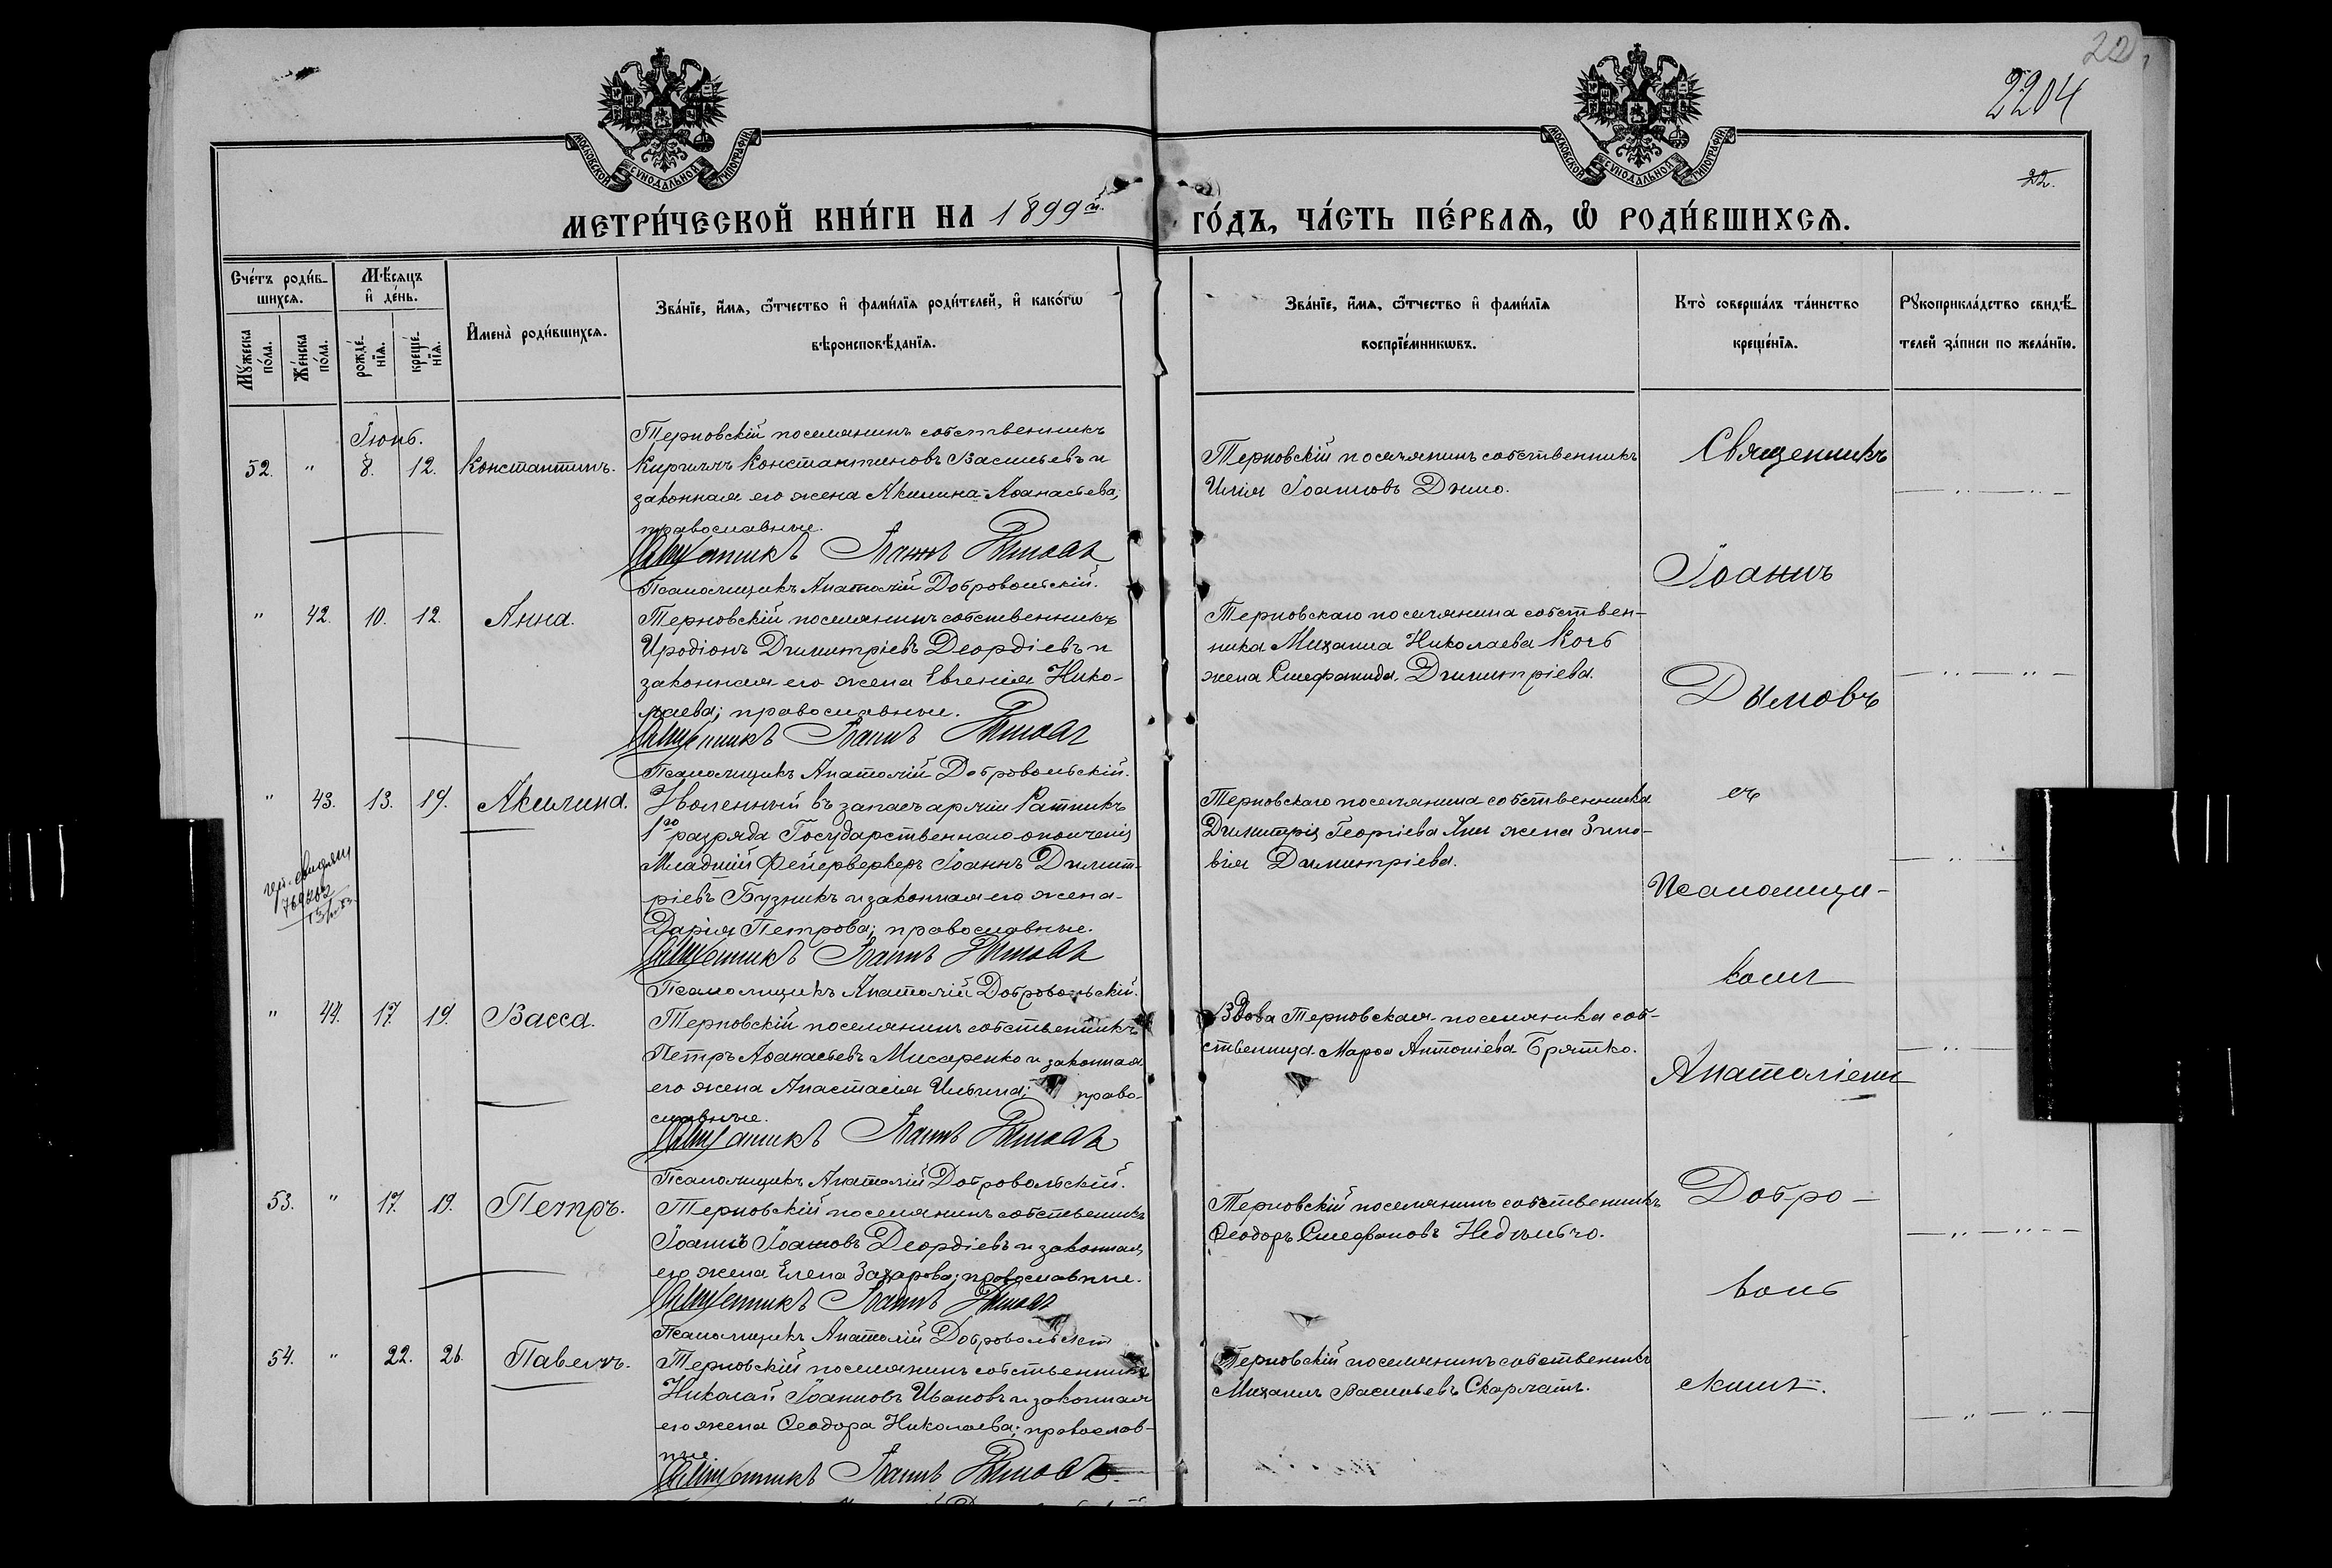 22
2204
22.
МОСКОВСКОЙ СѴНОДАЛЬНОЙ ТИПОГРАФІИ
МОСКОВСКОЙ СѴНОДАЛЬНОЙ ТИПОГРАФІИ
МЕТРИ́ЧЕСКОЙ КНИ́ГИ НА 1899й. ГО́ДЪ, ЧА́СТЬ ПЕ́РВАѦ, Ѡ҆ РОДИ́ВШИХСѦ.
Сче́тъ роди́в-
шихсѧ.
Мꙋ́жеска по́ла.
Же́нска по́ла.
Мѣ́сѧцъ
и҆ де́нь.
рожде́-
нїѧ.
креще́-
нїѧ.
И҆мена̀ роди́вшихсѧ.
Зва́нїе, и҆́мѧ, ѻ҆́тчество и҆ фами́лїѧ роди́телей, и҆ како́гѡ
вѣроисповѣ́данїѧ.
Зва́нїе, и҆́мѧ, ѻ҆́тчество и҆ фами́лїѧ
воспрїе́мникѡвъ.
Кто̀ соверша́лъ та́инство
креще́нїѧ.
Рꙋкоприкла́дство свидѣ́-
телей за́писи по жела́нїю.
Іюнь.
52. " 8. 12. Константинъ.
Терновскій поселянинъ собственникъ
Кириллъ Константиновъ Васильевъ и
законная его жена Акилина Аѳанасьева,
православные.
Священникъ Іоаннъ Дымовъ
Псаломщикъ Анатолій Добровольскій.
Терновскій поселянинъ собственникъ
Илія Іоанновъ Димо.
" 42. 10. 12. Анна.
Терновскій поселянинъ собственникъ
Иродіонъ Димитріевъ Деордіевъ и
законная его жена Евгенія Нико-
лаева; православные.
Священникъ Іоаннъ Дымовъ
Псаломщикъ Анатолій Добровольскій.
Терновскаго поселянина собствен-
ника Михаила Николаева Кочь
жена Стефанида Димитріева.
" 43. 13. 19. Акилина.
Уволенный въ запасъ арміи Ратникъ
1го разряда Государственнаго ополченія
Младшій Фейерверкеръ Іоаннъ Димит-
ріевъ Бузникъ и законная его жена
Дарія Петрова; православные.
Священникъ Іоаннъ Дымовъ
Псаломщикъ Анатолій Добровольскій.
Терновскаго поселянина собственника
Димитрія Георгіева жена Зино-
вія Димитріева.
" 44. 17. 19. Васса.
Терновскій поселянинъ собственникъ
Петръ Аѳанасьевъ Мисаренко и законная
его жена Анастасія Ильина; право-
славные.
Священникъ Іоаннъ Дымовъ
Псаломщикъ Анатолій Добровольскій.
Вдова Терновская поселянка соб-
ственница Марѳа Антоніева Братко.
53. " 17. 19. Петръ.
Терновскій поселянинъ собственникъ
Іоаннъ Іоанновъ Деордіевъ и законная
его жена Елена Захарова; православные.
Священникъ Іоаннъ Дымовъ
Псаломщикъ Анатолій Добровольскій
Терновскій поселянинъ собственникъ
Ѳеодоръ Стефановъ
54. " 22. 26. Павелъ.
Терновскій поселянинъ собственникъ
Николай Іоанновъ Ивановъ и законная
его жена Ѳеодора Николаева; православ-
ные
Священникъ Іоаннъ Дымовъ
Терновскій поселянинъ собственникъ
Михаилъ Васильевъ Скарлатъ.
Священникъ
Іоаннъ
Дымовъ
съ
Псаломщи-
комъ
Анатоліемъ
Добро-
воль
скимъ.